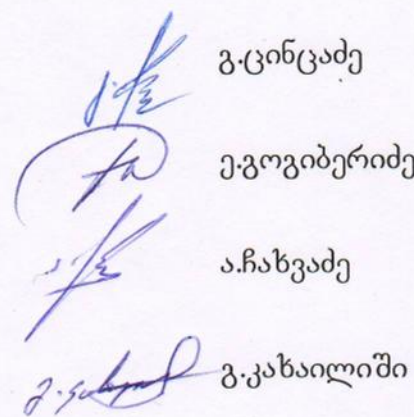 გ.ცინცაძე
ე.გოგიბერიძე
ა.ჩახვაძე
გ.კახაილიში